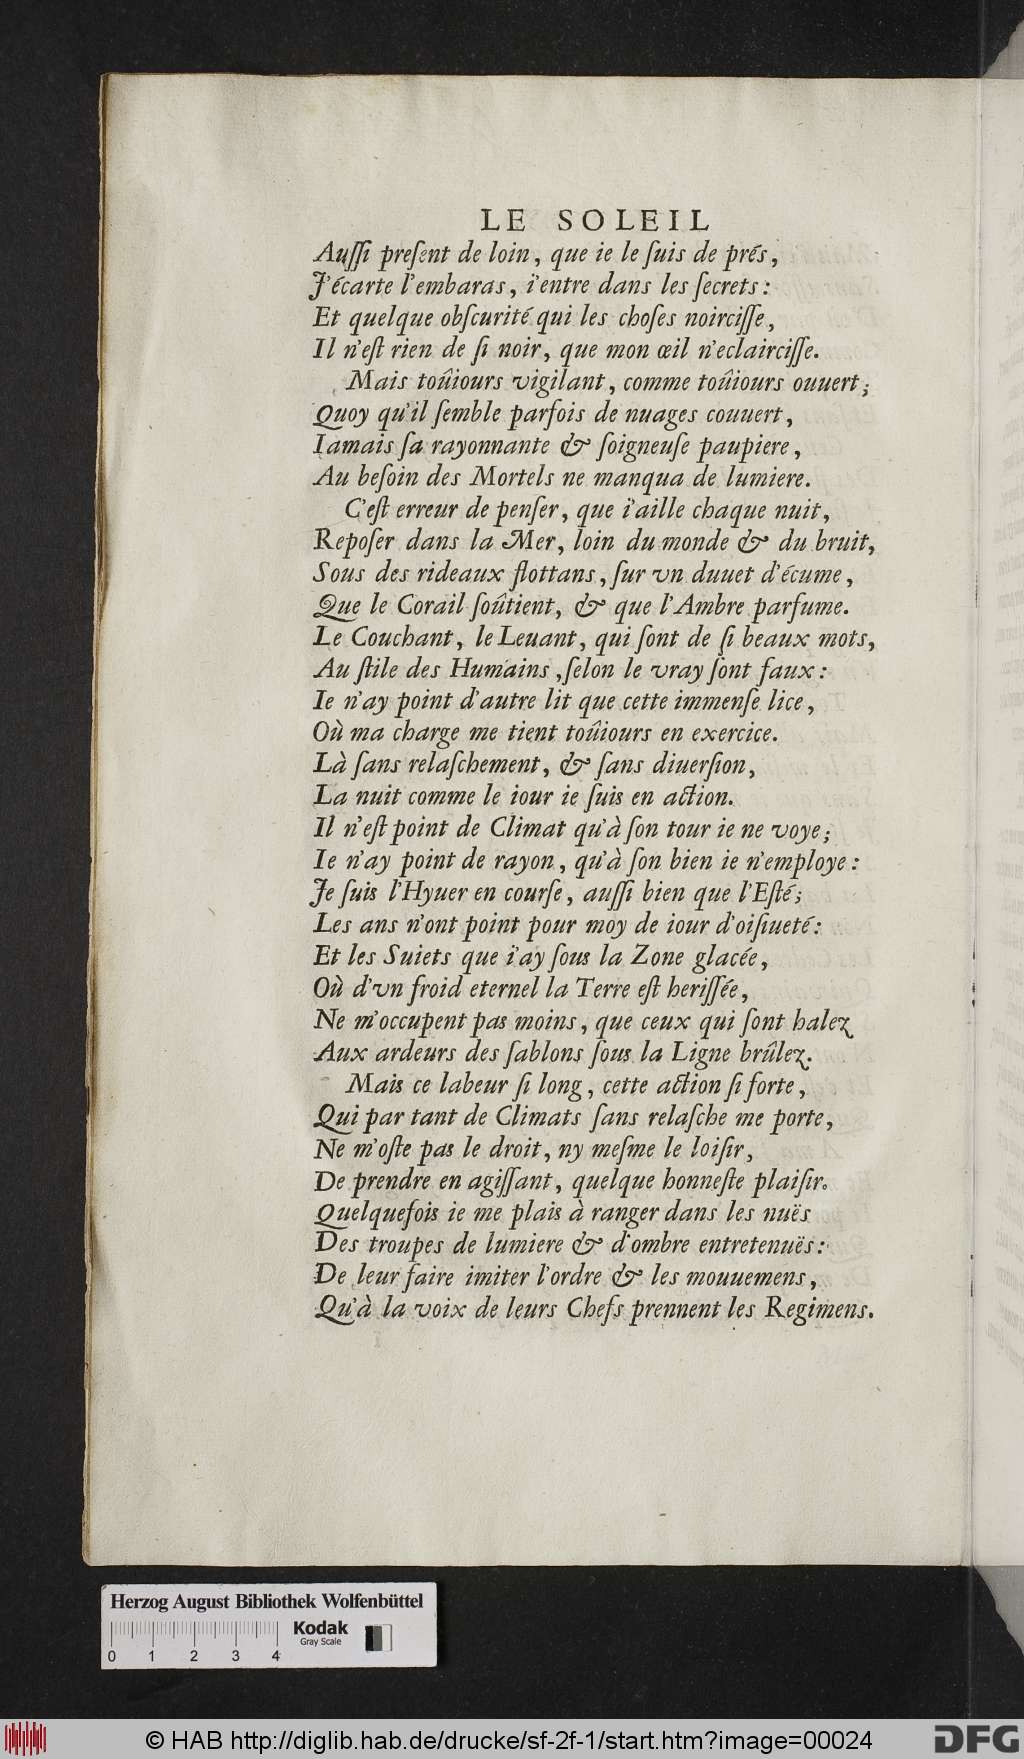 LE SOLEIL
Auſſi preſent de loin, que ie le ſuis de prés,
J'écarte l'embaras, i'entre dans les ſecrets:
Et quelque obſcurité qui les choſes noirciſſe,
Il n'eſt rien de ſi noir, que mon œil n'eclairciſſe.
Mais toûiours vigilant, comme toûiours ouuert;
Quoy qu'il ſemble parfois de nuages couuert,
Iamais ſa rayonnante & ſoigneuſe paupiere,
Au beſoin des Mortels ne manqua de lumiere.
C'eſt erreur de penſer, que i'aille chaque nuit,
Repoſer dans la Mer, loin du monde & du bruit,
Sous des rideaux flottans, ſur vn duuet d'écume,
Que le Corail ſoûtient, & que l'Ambre parfume.
Le Couchant, le Leuant, qui ſont de ſi beaux mots,
Au ſtile des Humains, ſelon le vray ſont faux:
Ie n'ay point d'autre lit que cette immenſe lice,
Où ma charge me tient toûiours en exercice.
Là ſans relaſchement, & ſans diuerſion,
La nuit comme le iour ie ſuis en action.
Il n'eſt point de Climat qu'à ſon tour ie ne voye;
Ie n'ay point de rayon, qu'à ſon bien ie n'employe:
Je ſuis l'Hyuer en courſe, auſſi bien que l'Eſté;
Les ans n'ont point pour moy de iour d'oiſiueté:
Et les Suiets que i'ay ſous la Zone glacée,
Où d'vn froid eternel la Terre eſt heriſſée,
Ne m'occupent pas moins, que ceux qui ſont halez
Aux ardeurs des ſablons ſous la Ligne brûlez.
Mais ce labeur ſi long, cette action ſi forte,
Qui par tant de Climats ſans relaſche me porte,
Ne m'oſte pas le droit, ny meſme le loiſir,
De prendre en agiſſant, quelque honneſte plaiſir.
Quelquefois ie me plais à ranger dans les nuës
Des troupes de lumiere & d'ombre entretenuës:
De leur faire imiter l'ordre & les mouuemens,
Qu'à la voix de leurs Chefs prennent les Regimens.
Herzog August Bibliothek Wolfenbüttel
Kodak
Gray Scale
0 1 2 3 4
© HAB http://diglib.hab.de/drucke/sf-2f-1/start.htm?image=00024
DFG